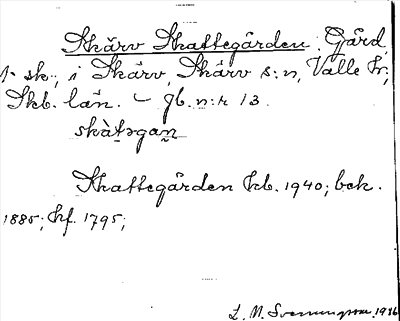 Skärv Skattegården. Gård,
1 sk., i Skärv, Skärv s:n, Valle hd;
Skb. län. – gb. n:r 13.
skàtəgan
Skattegården kb. 1940; bek.
1885; kf. 1795;
L. M. Svenungsson 1946